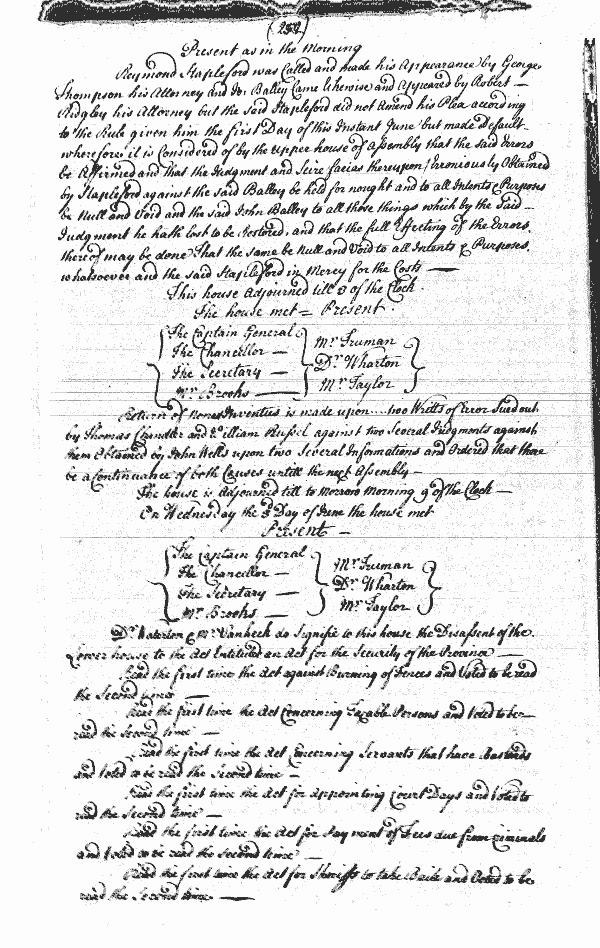 (252)
Present as in the Morning
Reymond Stapleford was Called and made his Appearance by George
Thompson his Attorney and Jno: Balley Came likewise and Appeared by Robert —
Ridgley his Attorney but the said Stapleford did not Amend his Plea according
to the Rule given him the first Day of this Instant June but made Default
wherefore it is Considered of by the upper house of Assembly that the said Errors
be Affirmed and that the Judgment and Scire facias thereupon Erroniously Obtained
by Stapleford against the said Balley be held for nought and to all Intents & Purposes
be Null and Void and the said John Balley to all those things which by the said —
Judgment he hath lost to be Restored, and that the full Effecting of the Errors
thereof may be done That the same be Null and Void to all Intents & Purposes
whatsoever and the said Stapleford in Mercy for the Costs —
This house Adjourned till 3 of the Clock.
The house met = Present.
The Captain General
The Chancellor —
The Secretary —
Mr. Brooks —
Mr. Truman
Dr. Wharton
Mr. Taylor
Return of Nones Inventus is made upon two Writts of Error Sued out
by Thomas Chandler and William Russel against two Several Judgments against
them Obtained by John Wells upon two Several Informations and Ordered that there
be a Continuance of both Causes untill the next Assembly —
The house is Adjourned till to Morrow Morning 9 of the Clock —
On Wednesday the 3 Day of June the house met
Present —
The Captain General
The Chancellor —
The Secretary —
Mr. Brooks —
Mr. Truman
Dr. Wharton
Mr. Taylor
Dr. Waterton & Mr. Vanheck do Signifie to this house the Disassent of the
Lower house to the Act Entituled an Act for the Security of the Province —
Read the first time the Act against Burning of Fences and Voted to be read
the Second time —
Read the first time the Act Concerning Taxable Persons and Voted to be —
read the Second time —
Read the first time the Act Concerning Servants that have Bastards
and Voted to be read the Second time —
Read the first time the Act for Appointing Court Days and Voted to
read the Second time —
Read the first time the Act for Payment of Fees due from Criminals
and Voted to be read the Second time —
Read the first time the Act for Sheriffs to take Baile and Voted to be
read the Second time —